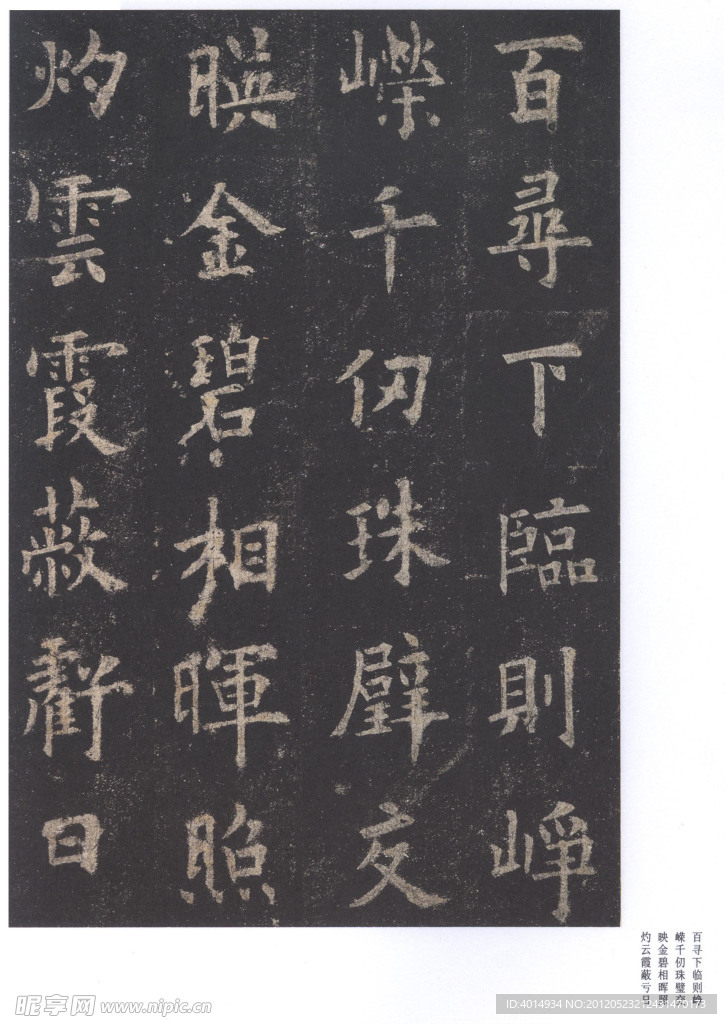 百尋下臨則崢
嶸千仞珠璧交
暎金碧相暉照
灼雲霞蔽虧日
百寻下临则峥
嵘千仞珠璧交
映金碧相晖照
灼云霞蔽亏日
昵享网 www.nipic.cn
ID:4014934 NO:20120523212431470173